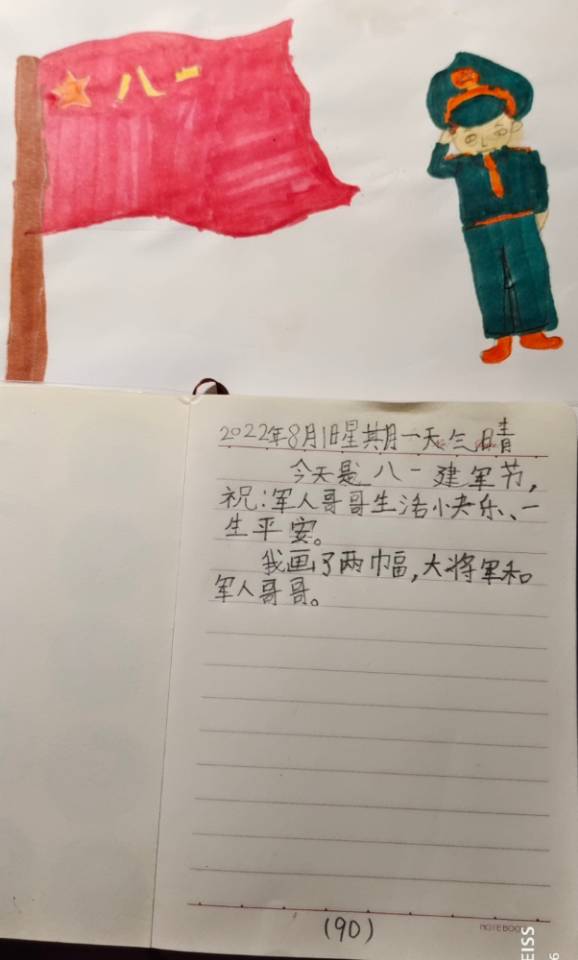 八一
2022年8月1日星期一天气晴
今天是八一建军节，
祝：军人哥哥生活小快乐、一
生平安。
我画了两巾幅，大将军和
军人哥哥。
(90)
NOTEBOOK
EISS
6